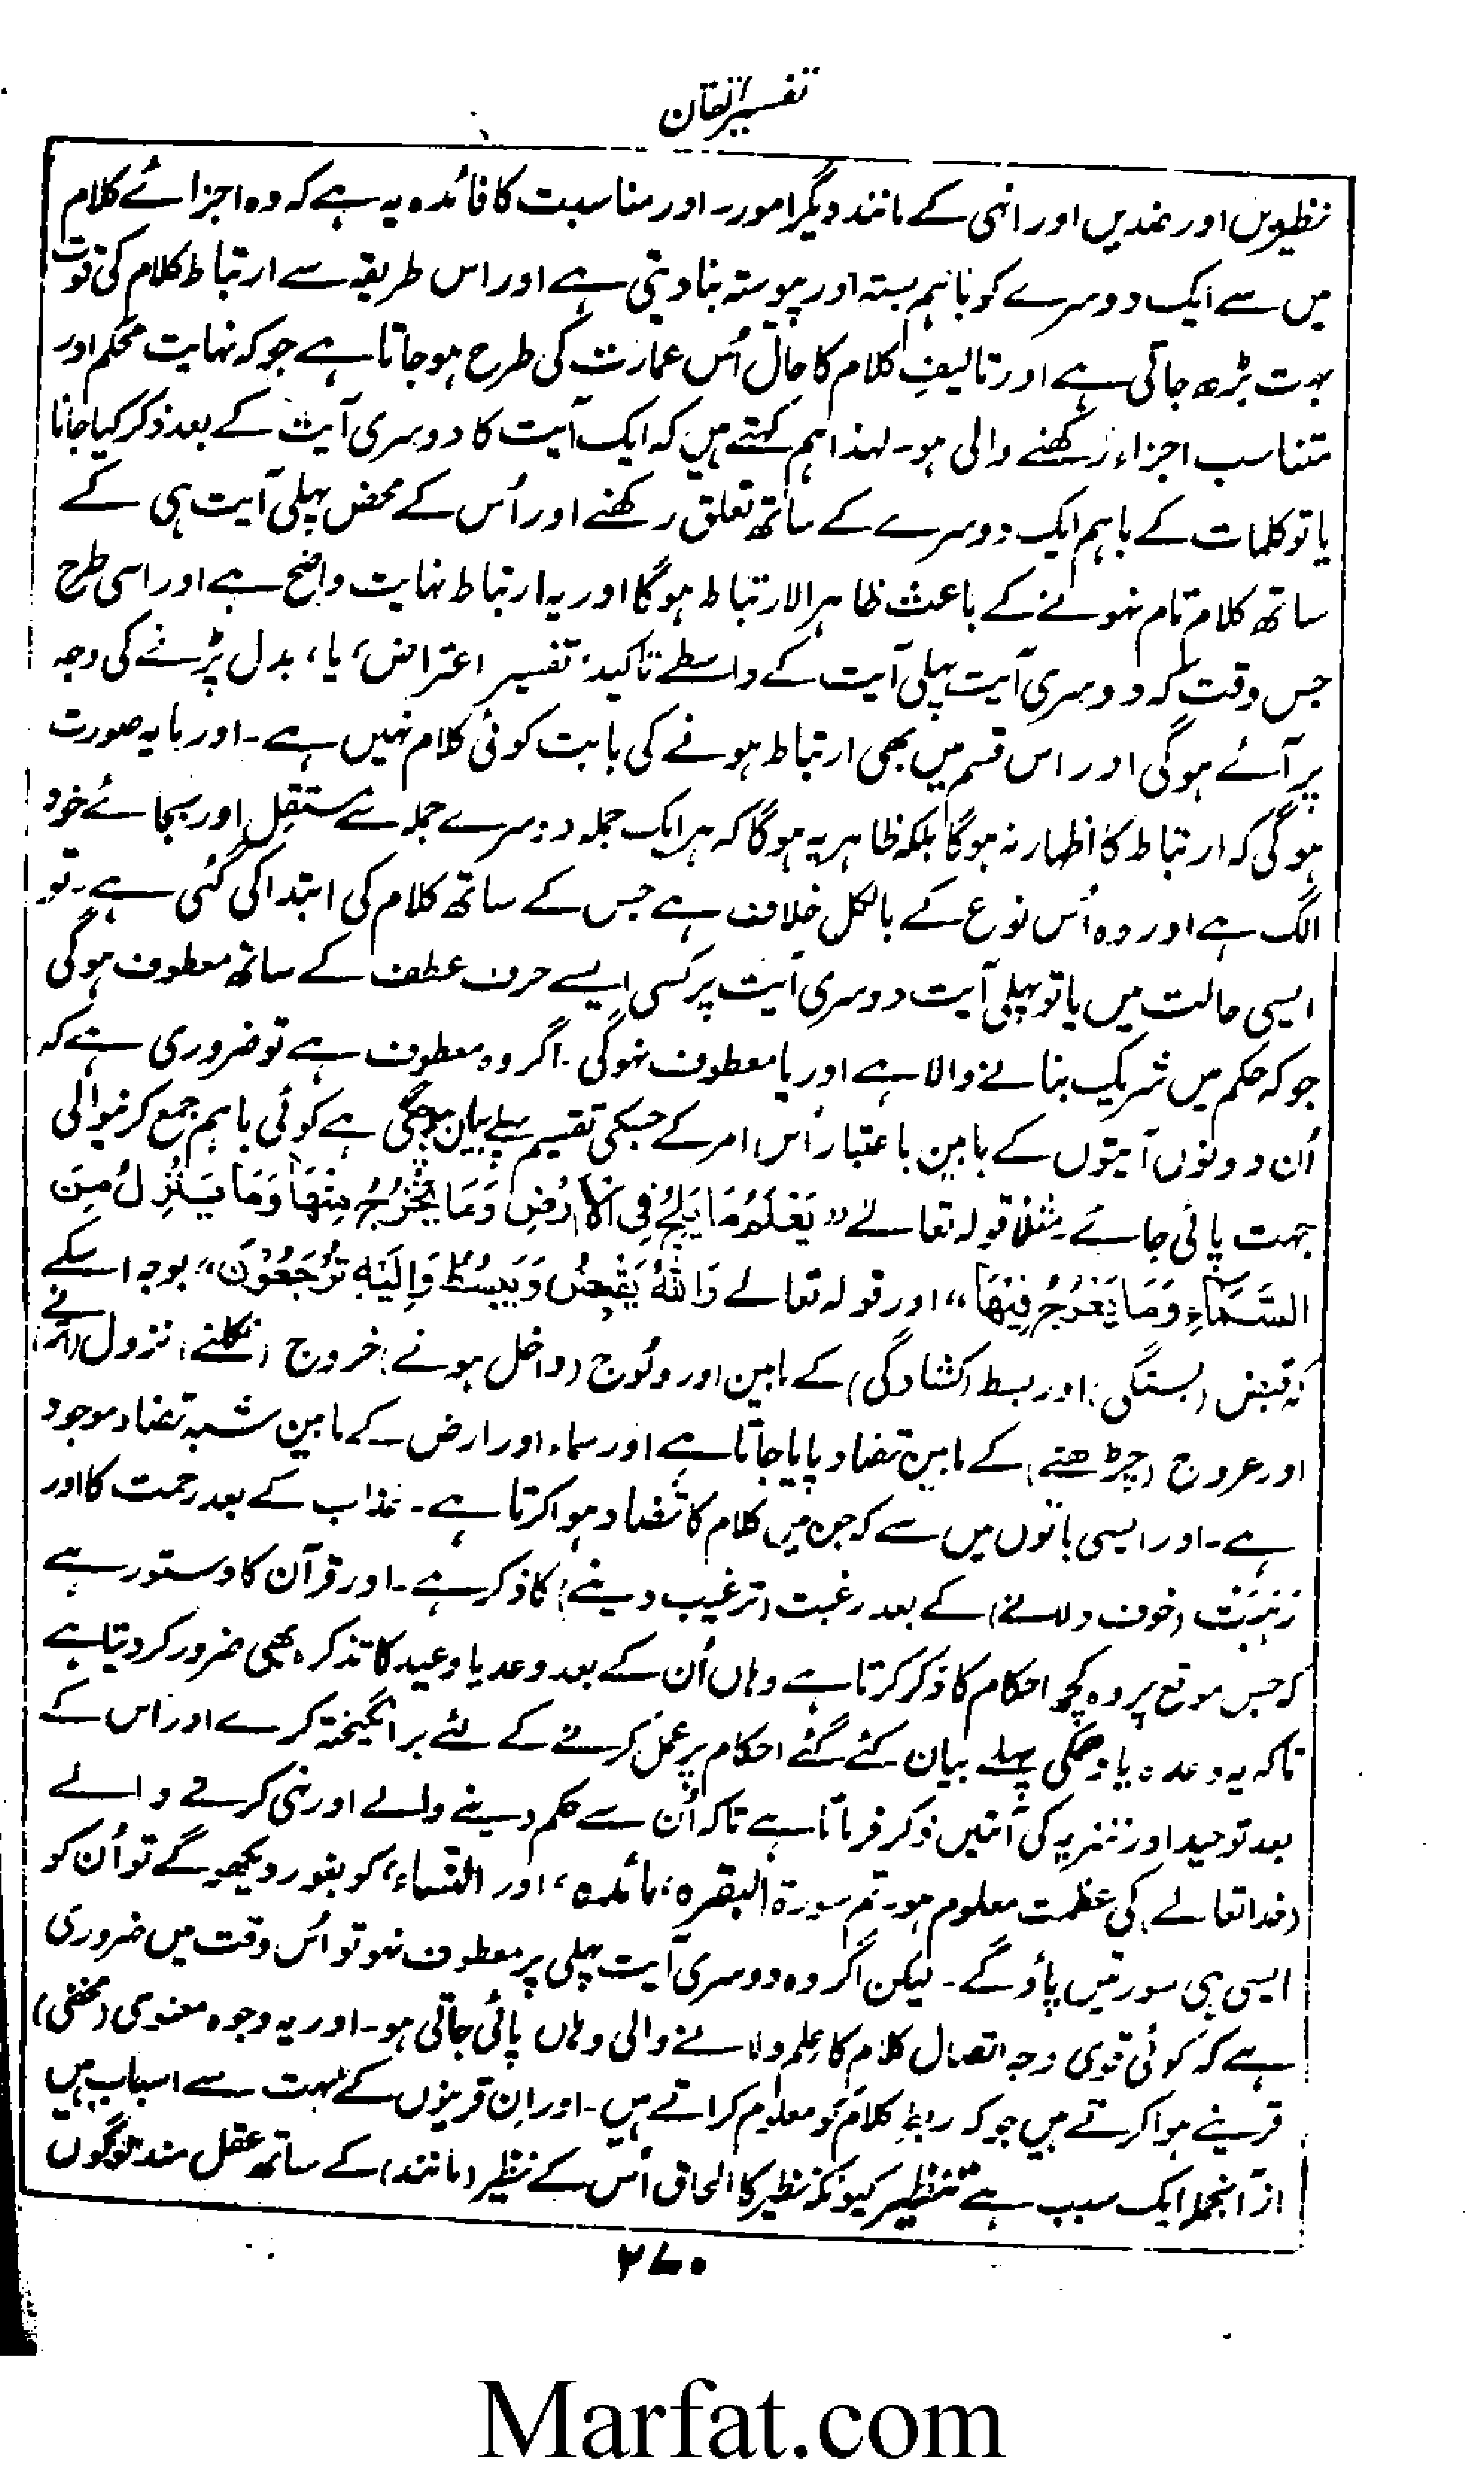 تفسیر اتقان
نظیریں اور ضدیں اور انہی کے مانند دیگر امور۔ اور مناسبت کا فائدہ یہ ہے کہ وہ اجزائے کلام
میں سے ایک دوسرے کو باہم بستہ اور پیوستہ بنا دیتی ہے اور اس طریقہ سے ارتباط کلام کی قوت
بہت بڑھ جاتی ہے اور تالیفِ کلام کا حال اُس عمارت کی طرح ہو جاتا ہے جو کہ نہایت محکم اور
متناسب اجزاء رکھنے والی ہو۔ لہذا ہم کہتے ہیں کہ ایک آیت کا دوسری آیت کے بعد ذکر کیا جانا
یا تو کلمات کے باہم ایک دوسرے کے ساتھ تعلق رکھنے اور اُس کے محض پہلی آیت ہی کے
ساتھ کلام تام نہونے کے باعث ظاہر الارتباط ہوگا اور یہ ارتباط نہایت واضح ہے اور اسی طرح
جس وقت کہ دوسری آیت پہلی آیت کے واسطے تاکید، تفسیر اعتراض، یا، بدل پڑنے کی وجہ
پر آئے ہوگی اور اس قسم میں بھی ارتباط ہونے کی بابت کوئی کلام نہیں ہے۔ اور یا یہ صورت
ہوگی کہ ارتباط کا اظہار نہ ہوگا بلکہ ظاہر یہ ہوگا کہ ہر ایک جملہ دوسرے جملہ سے مستقل اور بجائے خود
الگ ہے اور وہ اُس نوع کے بالکل خلاف ہے جس کے ساتھ کلام کی ابتدا کی گئی ہے۔ تو
ایسی حالت میں یا تو پہلی آیت دوسری آیت پر کسی ایسے حرف عطف کے ساتھ معطوف ہوگی
جو کہ حکم میں شریک بنانے والا ہے اور یا معطوف نہوگی۔ اگر وہ معطوف ہے تو ضروری ہے کہ
اُن دونوں آیتوں کے مابین باعتبار اُس امر کے جسکی تقسیم پہلے بیان ہو چکی ہے کوئی باہم جمع کرنیوالی
جہت پائی جائے مثلاً قولہ تعالے ”یَعْلَمُ مَا یَلِجُ فِی الْاَرْضِ وَمَا یَخْرُجُ مِنْهَا وَمَا یَنْزِلُ مِنَ
السَّمَآءِ وَمَا یَعْرُجُ فِیْهَا“ اور قولہ تعالے وَاللّٰهُ یَقْبِضُ وَیَبْسُطُ وَاِلَیْهِ تُرْجَعُوْنَ“ بوجہ اسکے
کہ قبض (بستگی) اور بسط (کشادگی) کے مابین اور ولُوج (داخل ہونے) خروج (نکلنے) نزول (اترنے)
اور عروج (چڑھنے) کے مابین تضاد پایا جاتا ہے اور سماء اور ارض کے مابین شبہ تضاد موجود
ہے۔ اور ایسی باتوں میں سے کہ جن میں کلام کا تضاد ہوا کرتا ہے۔ عذاب کے بعد رحمت کا اور
رَہْبَتْ (خوف دلانے) کے بعد رغبت (ترغیب دینے) کا ذکر ہے۔ اور قرآن کا دستور ہے
کہ جس موقع پر وہ کچھ احکام کا ذکر کرتا ہے وہاں اُن کے بعد وعد یا وعید کا تذکرہ بھی ضرور کر دیتا ہے
تاکہ یہ وعدہ یا دھمکی پہلے بیان کئے گئے احکام پر عمل کرنے کے لئے برانگیختہ کرے اور اس کے
بعد توحید اور تنزیہ کی آئتیں ذکر فرماتا ہے تاکہ اُن سے حکم دینے والے اور نہی کرنے والے
(خدا تعالے) کی عظمت معلوم ہو۔ تم سورۃ البقرہ، مائدہ، اور النساء، کو بغور دیکھو گے تو اُن کو
ایسی ہی سورتیں پاؤ گے۔ لیکن اگر وہ دوسری آیت پہلی پر معطوف نہو تو اُس وقت میں ضروری
ہے کہ کوئی قوی وجہ اتصال کلام کا علم دلانے والی وہاں پائی جاتی ہو۔ اور یہ وجوہ معنوی (مخفی)
قرینے ہوا کرتے ہیں جو کہ ربطِ کلام کو معلوم کراتے ہیں۔ اور اِن قرینوں کے بہت سے اسباب ہیں
از آنجملہ ایک سبب ہے تنظیر کیونکہ نظیر کا الحاق اُس کے نظیر (مانند) کے ساتھ عقل مند لوگوں
۲۷۰
Marfat.com